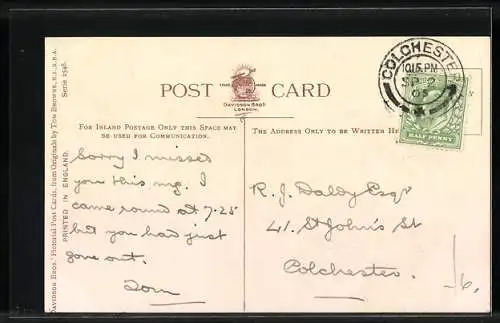 COLCHESTER
10.15 PM
SP 12
05
HALF PENNY
POST CARD
TRADE MARK
DAVIDSON BROS
LONDON.
FOR INLAND POSTAGE ONLY THIS SPACE MAY
BE USED FOR COMMUNICATION.
THE ADDRESS ONLY TO BE WRITTEN HE
Sorry I missed
you this mg. I
came round at 7-25
but you had just
gone out.
Tom
R. J. Daldy Esqr
41. St John's St
Colchester.
DAVIDSON BROS.' Pictorial Post Cards, from Originals by TOM BROWNE, R.I., R.B.A.
Serie 2598.
PRINTED IN ENGLAND.